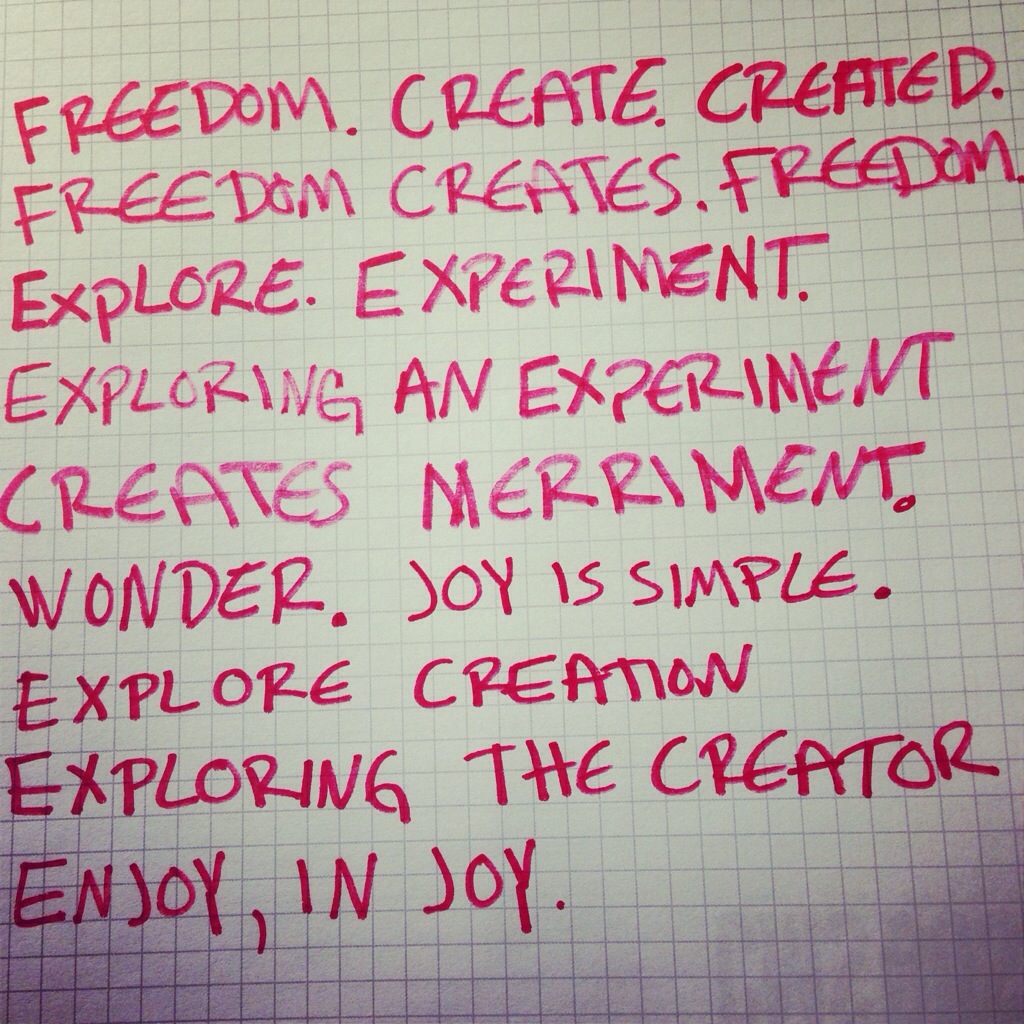 FREEDOM. CREATE. CREATED.
FREEDOM CREATES. FREEDOM.
EXPLORE. EXPERIMENT.
EXPLORING AN EXPERIMENT
CREATES MERRIMENT.
WONDER. JOY IS SIMPLE.
EXPLORE CREATION
EXPLORING THE CREATOR
ENJOY, IN JOY.